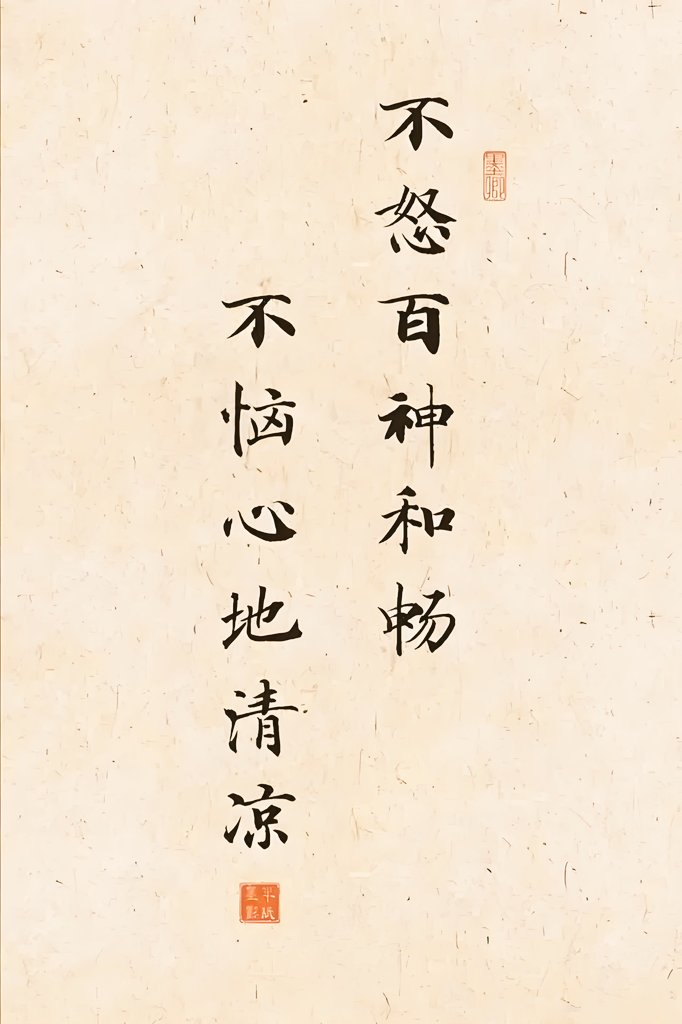 不怒百神和畅
不恼心地清凉